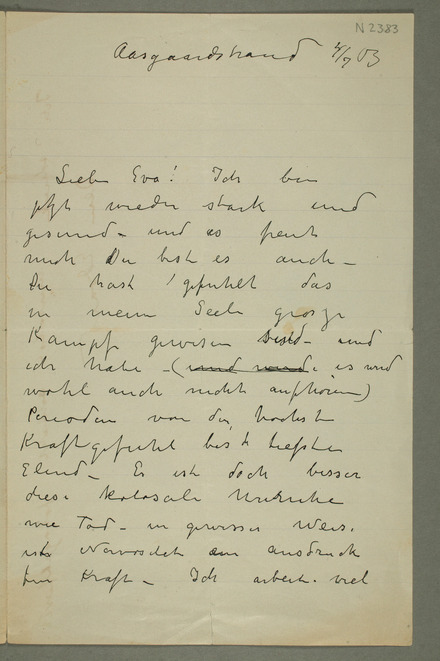 N 2383
Aasgaardstrand 4/7 03
Liebe Eva! Ich bin
jetzt wieder stark und
gesund – und es freut
mich Du bist es auch –
Du hast gefühlt das
in meine Seele grosze
Kampfe gewesen sind – und
ich habe – (und werde es wird
wohl auch nicht aufhören)
Perioden von der hochste
Kraftgefuhl bis t tiefsten
Elend – Es ist doch besser
diese kolosale Unruhe
wie Tod – in gewisser Weise
ist Nervositet ein ausdruck
für Kraft – Ich arbeite viel